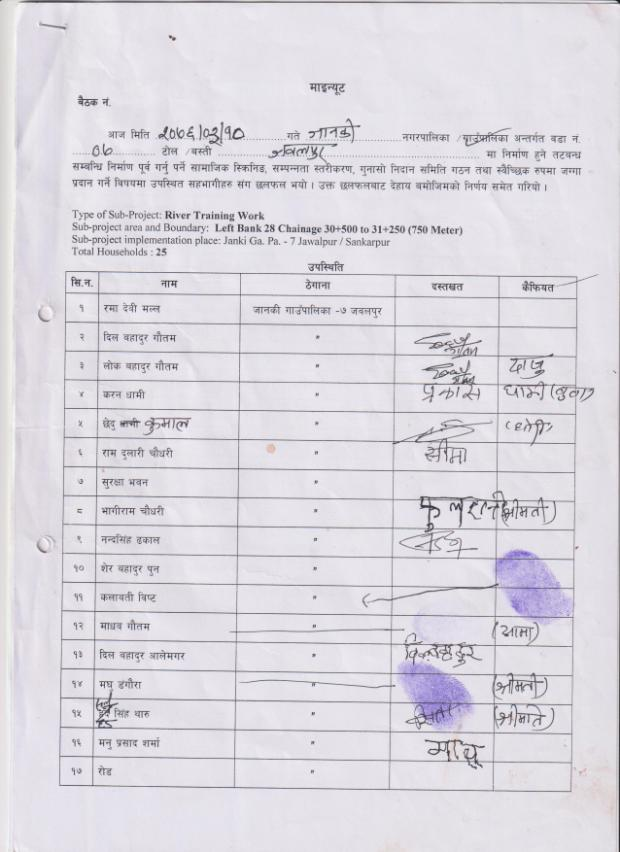 माइन्यूट
बैठक नं.
आज मिति २०७६/०३/१० गते जानकी नगरपालिका /गाउँपालिका अन्तर्गत वडा नं.
०७ टोल /बस्ती जवलपुर मा निर्माण हुने तटबन्ध
सम्बन्धि निर्माण पूर्व गर्नु पर्ने सामाजिक स्क्रिनिङ, सम्पन्नता स्तरीकरण, गुनासो निदान समिति गठन तथा स्वैच्छिक रुपमा जग्गा
प्रदान गर्ने विषयमा उपस्थित सहभागीहरु संग छलफल भयो । उक्त छलफलबाट देहाय बमोजिमको निर्णय समेत गरियो ।
Type of Sub-Project: River Training Work
Sub-project area and Boundary: Left Bank 28 Chainage 30+500 to 31+250 (750 Meter)
Sub-project implementation place: Janki Ga. Pa. - 7 Jawalpur / Sankarpur
Total Households : 25
उपस्थिति
सि.न. नाम ठेगाना दस्तखत कैफियत
१ रमा देवी मल्ल जानकी गाउंपालिका -७ जवलपुर
२ दिल बहादुर गौतम "
३ लोक बहादुर गौतम " दाजु
४ करन धामी " प्रकास धामी
५ छेदु कुमाल "
६ राम दुलारी चौधरी " सीमा
७ सुरक्षा भवन "
८ भागीराम चौधरी " (श्रीमती)
९ नन्दसिंह ढकाल "
१० शेर बहादुर पुन "
११ कलावती विष्ट "
१२ माधव गौतम " (आमा)
१३ दिल बहादुर आलेमगर "
१४ मघु डंगौरा " (श्रीमती)
१५ सिंह थारु " (श्रीमति)
१६ मनु प्रसाद शर्मा "
१७ रोड "